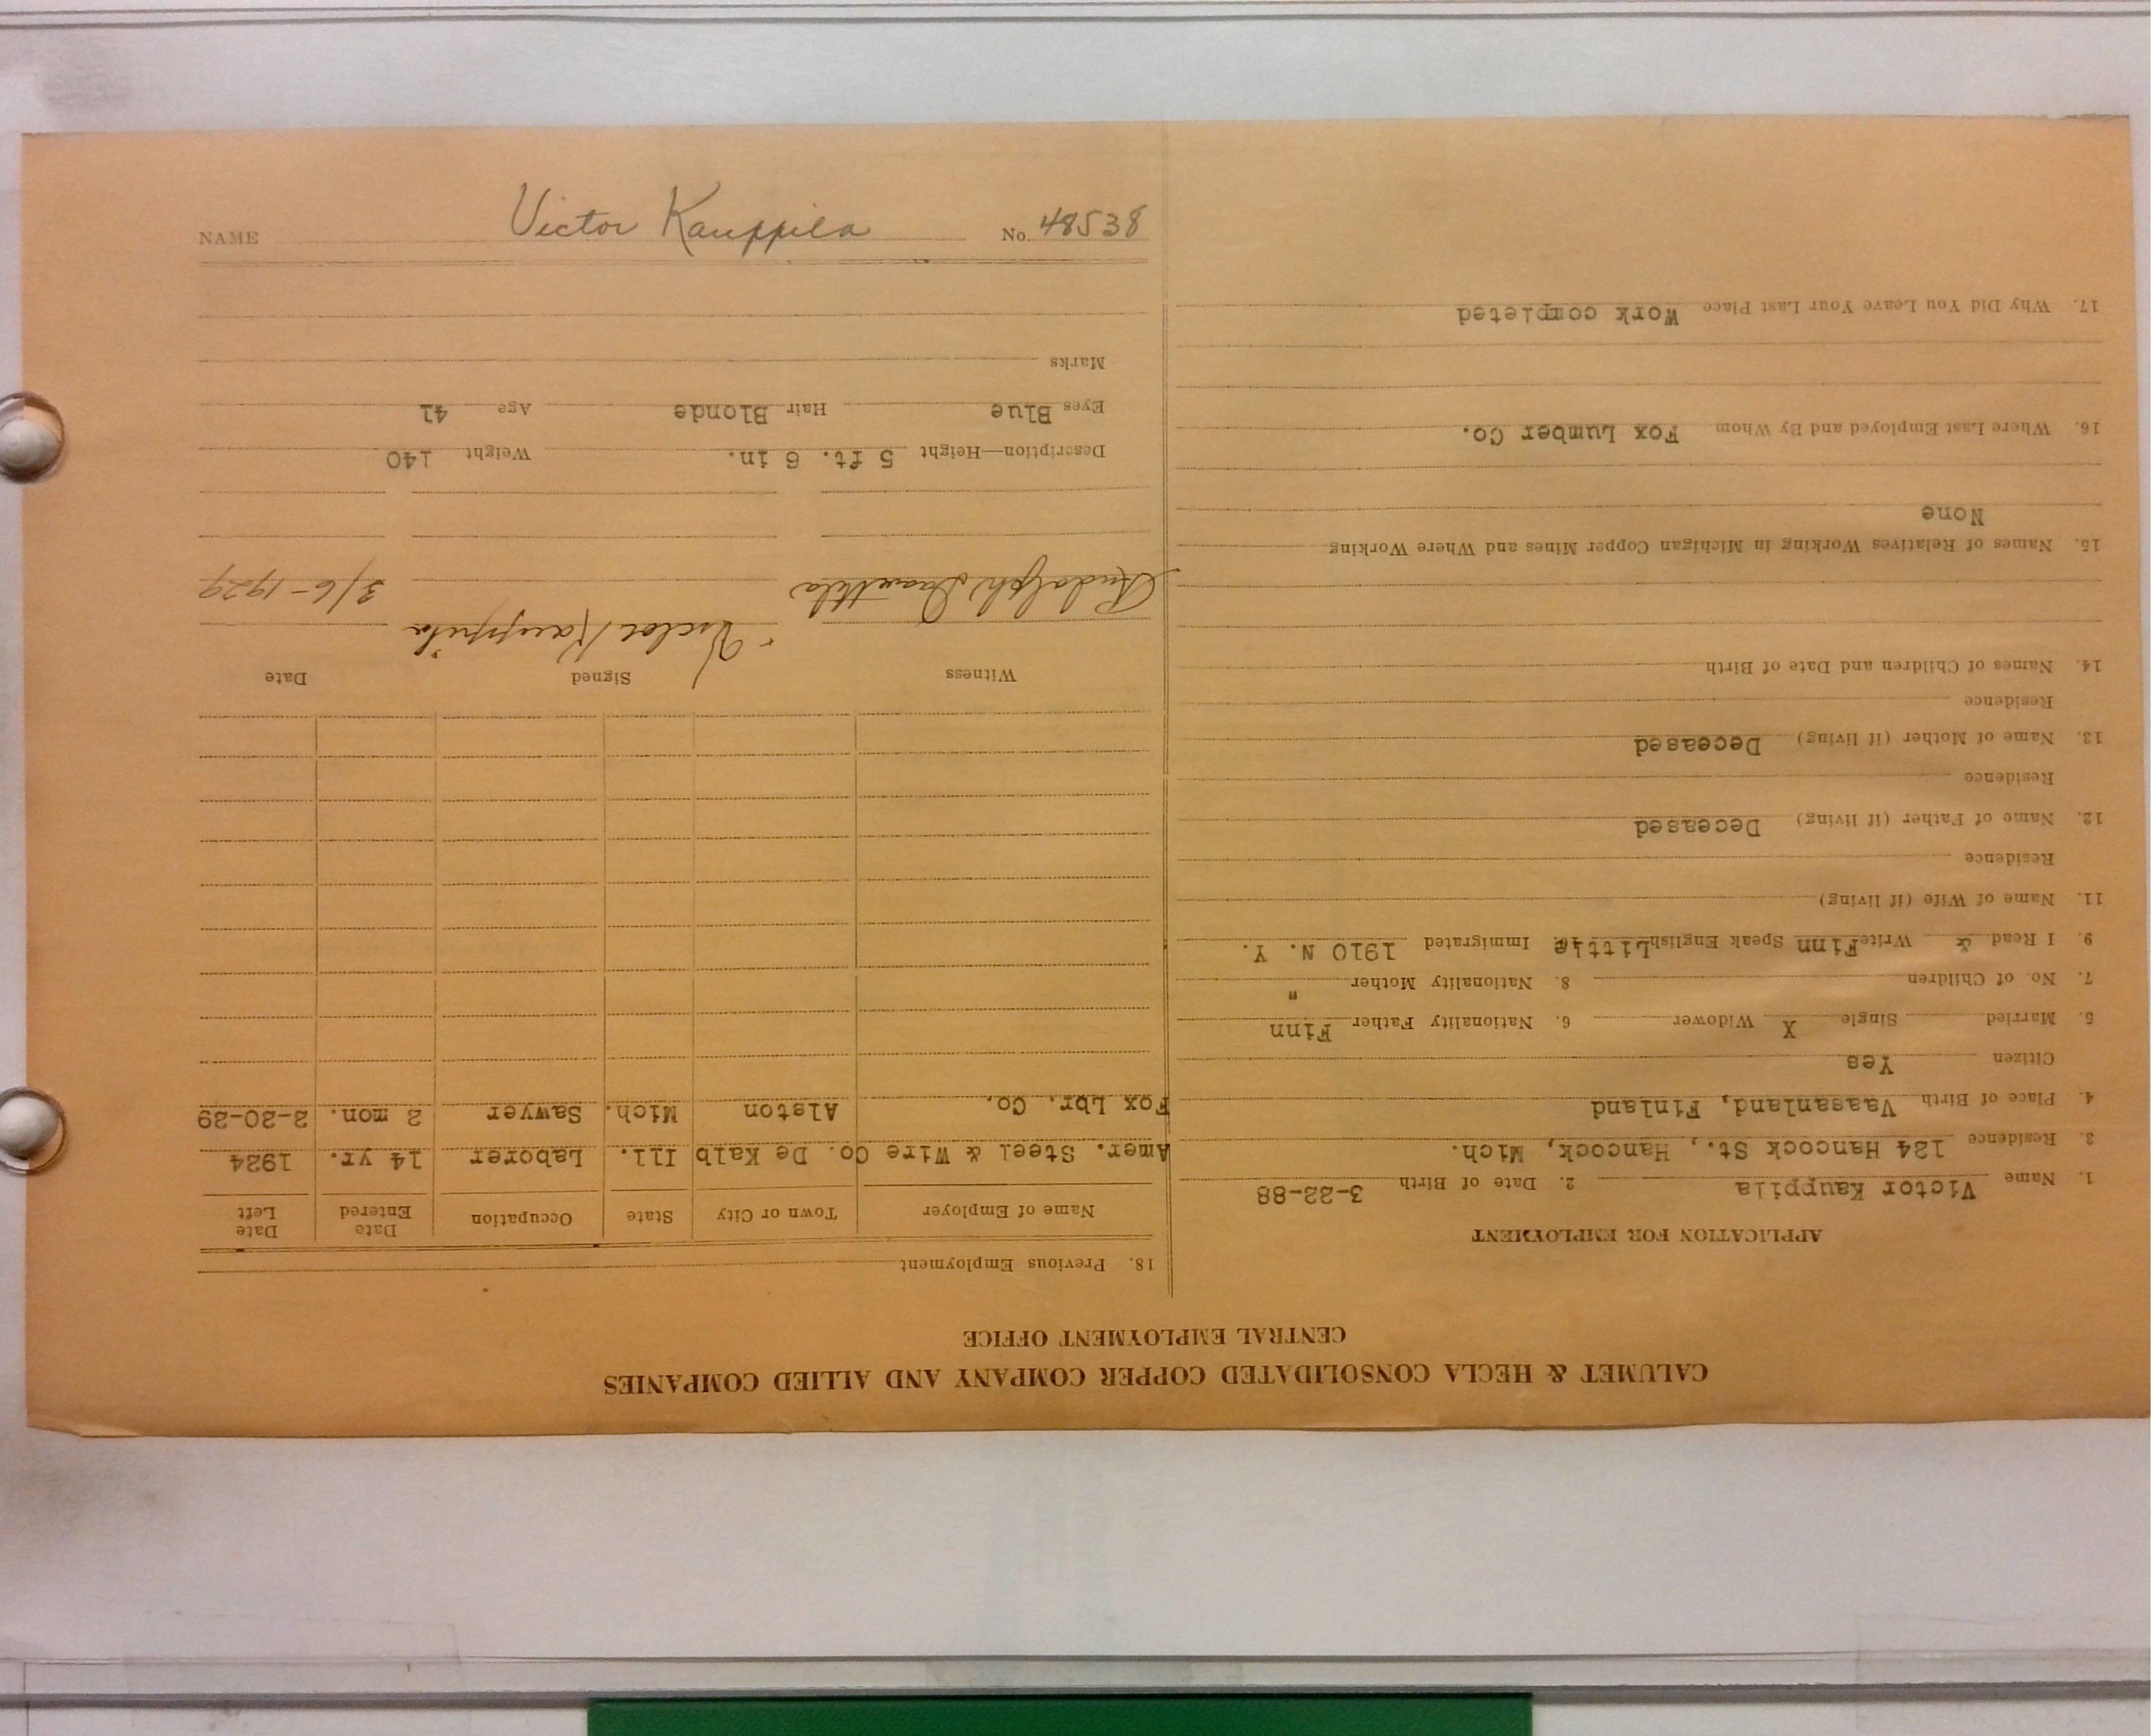 CALUMET & HECLA CONSOLIDATED COPPER COMPANY AND ALLIED COMPANIES
CENTRAL EMPLOYMENT OFFICE
APPLICATION FOR EMPLOYMENT
1. Name Victor Kauppila 2. Date of Birth 3-22-88
3. Residence 124 Hancock St., Hancock, Mich.
4. Place of Birth Vaasanland, Finland
Citizen Yes
5. Married Single X Widower 6. Nationality Father Finn
7. No. of Children 8. Nationality Mother "
9. I Read & Write Finn Speak English Little Immigrated 1910 N. Y.
11. Name of Wife (if living)
Residence
12. Name of Father (if living) Deceased
Residence
13. Name of Mother (if living) Deceased
Residence
14. Names of Children and Date of Birth
15. Names of Relatives Working in Michigan Copper Mines and Where Working
None
16. Where Last Employed and By Whom Fox Lumber Co.
17. Why Did You Leave Your Last Place Work completed
18. Previous Employment
Name of Employer Town or City State Occupation Date Entered Date Left
Amer. Steel & Wire Co. De Kalb Ill. Laborer 14 yr. 1924
Fox Lbr. Co. Alston Mich. Sawyer 2 mon. 2-20-29
Witness Signed Date
Rudolph Victor Kauppila 3/6-1929
Description—Height 5 ft. 6 in. Weight 140
Eyes Blue Hair Blonde Age 41
Marks
NAME Victor Kauppila No. 48538